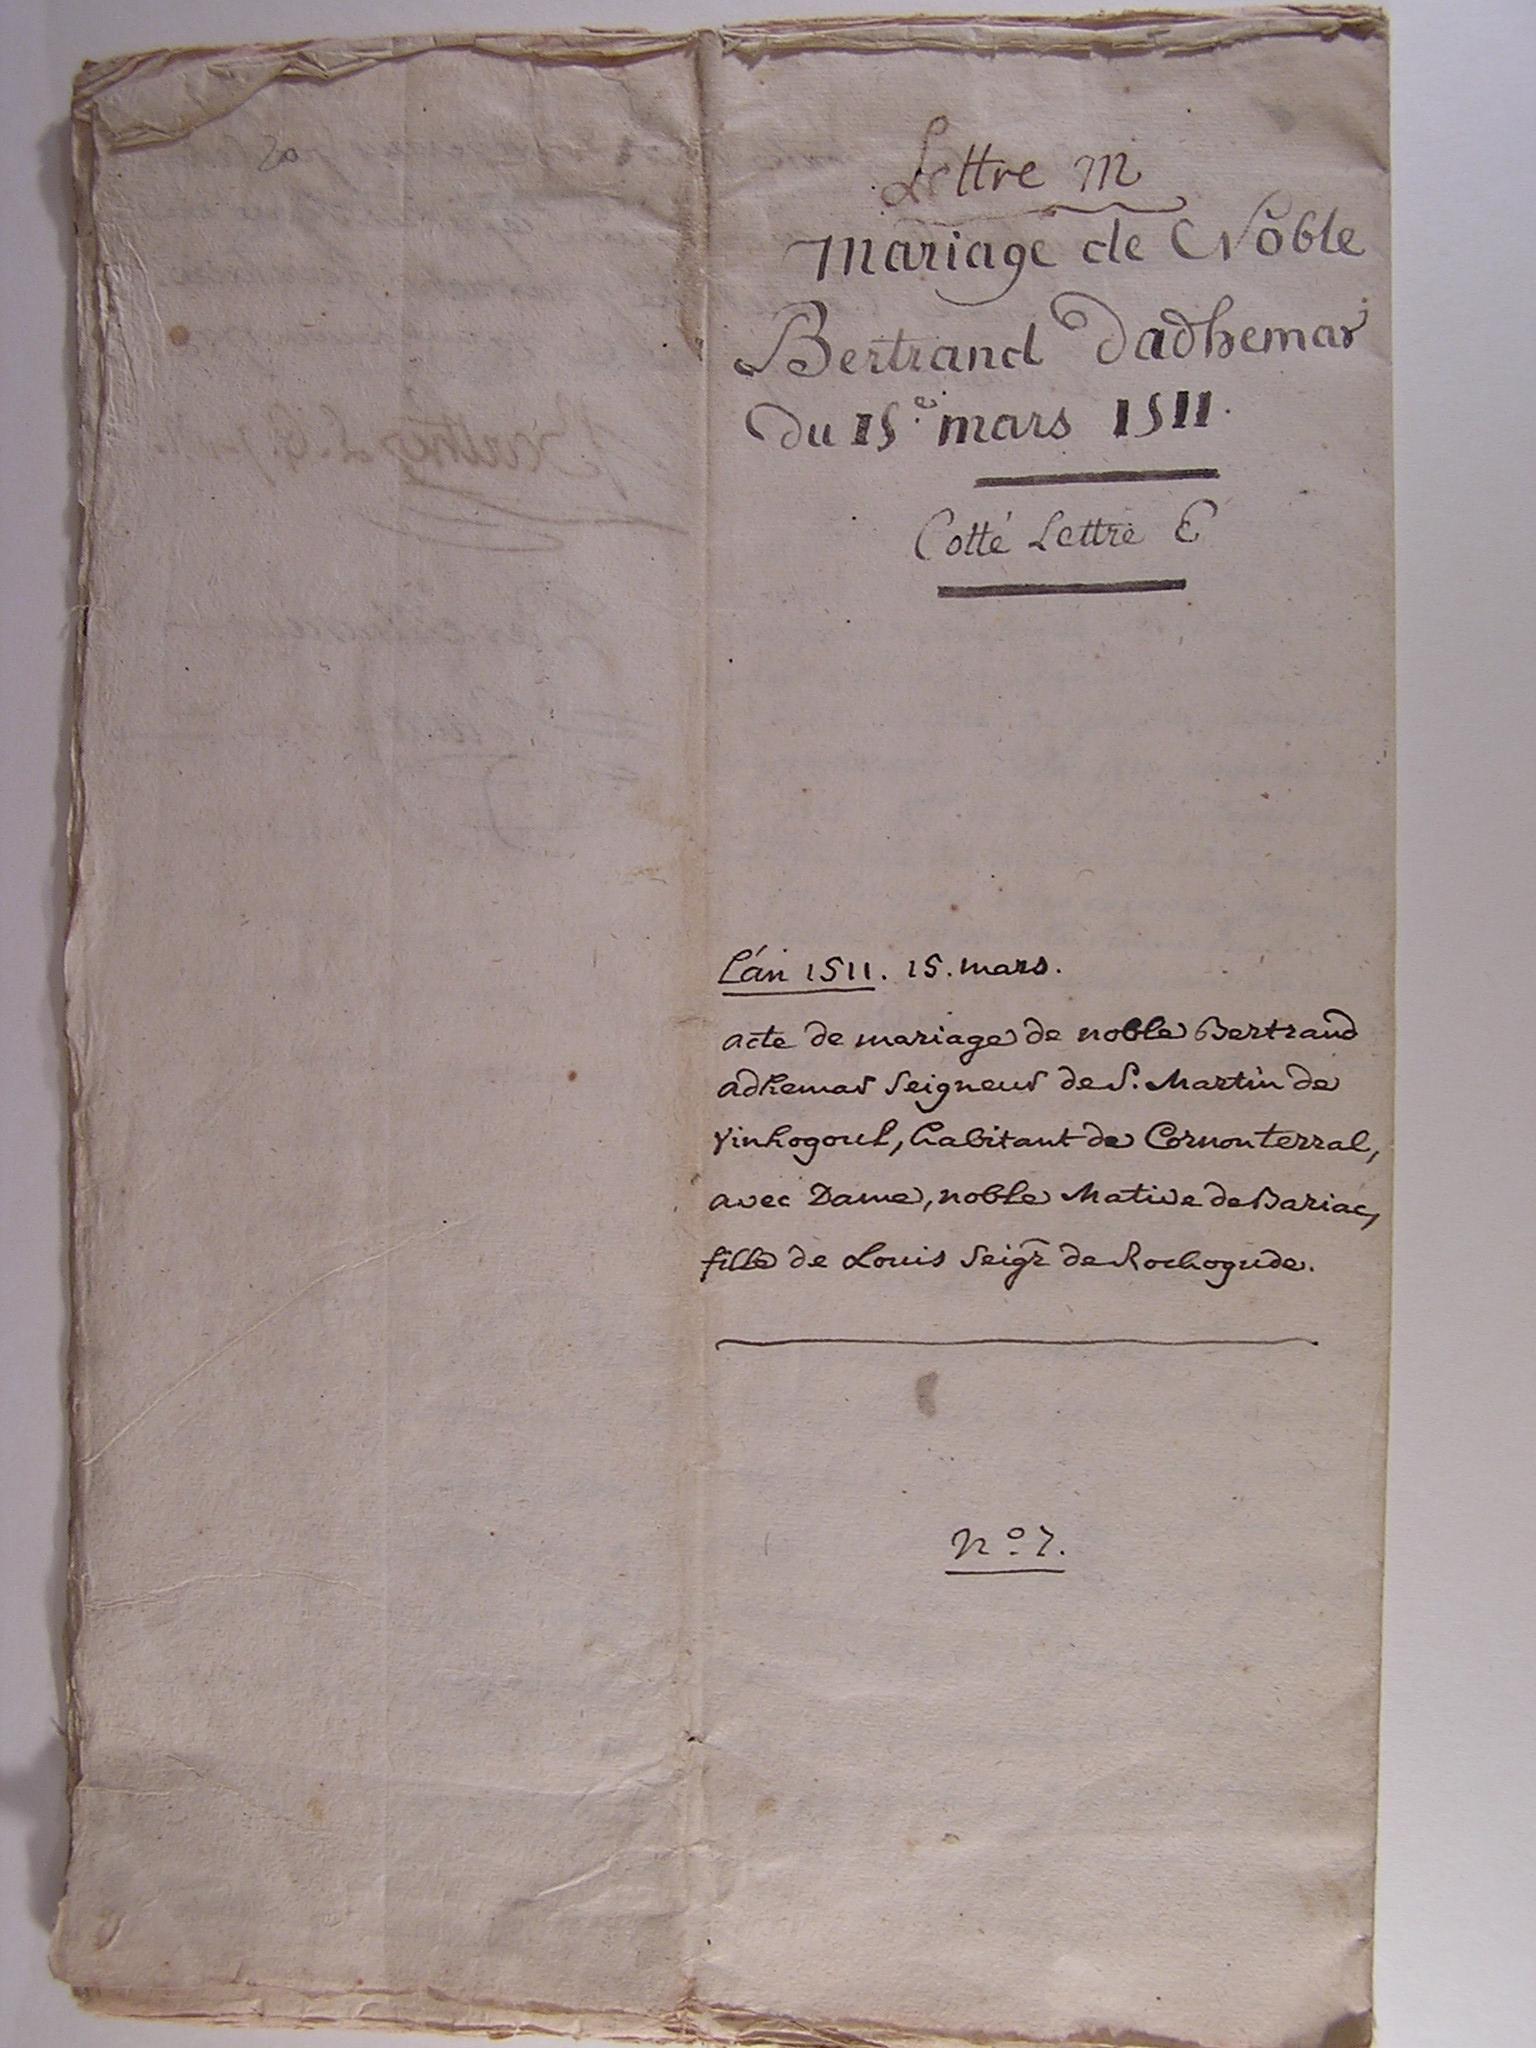 20
Lettre M
Mariage de Noble
Bertrand Dadhemar
Du 15.e mars 1511.
Cotté Lettre E
L'án 1511. 15. mars.
acte de mariage de noble Bertrand
adhemar Seigneur de S. Martin de
Vinhogoul, habitant de Cornonterral,
avec Dame, noble Mative de Bariac,
fille de Louis Seigr. de Rochogude.
No. 7.